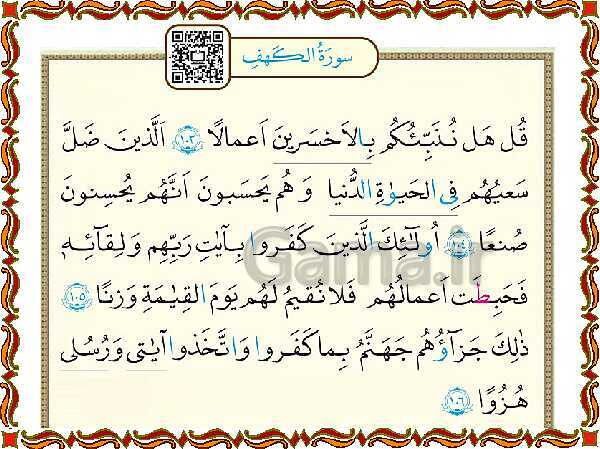 سورَةُ الكَهفِ
قُل هَل نُنَبِّئُكُم بِالاَخسَرينَ اَعمالًا ﴿١٠٣﴾ اَلَّذينَ ضَلَّ
سَعيُهُم فِی الحَيوٰةِ الدُّنيا وَ هُم يَحسَبونَ اَنَّهُم يُحسِنونَ
صُنعًا ﴿١٠٤﴾ اُولٰئِكَ الَّذينَ كَفَروا بِـٔايٰتِ رَبِّهِم وَ لِقائِهٖ
فَحَبِطَت اَعمالُهُم فَلا نُقيمُ لَهُم يَومَ القِيٰمَةِ وَزنًا ﴿١٠٥﴾
ذٰلِكَ جَزآؤُهُم جَهَنَّمُ بِما كَفَروا وَ اتَّخَذوا ءايٰتی وَ رُسُلی
هُزُوًا ﴿١٠٦﴾
Gama.ir